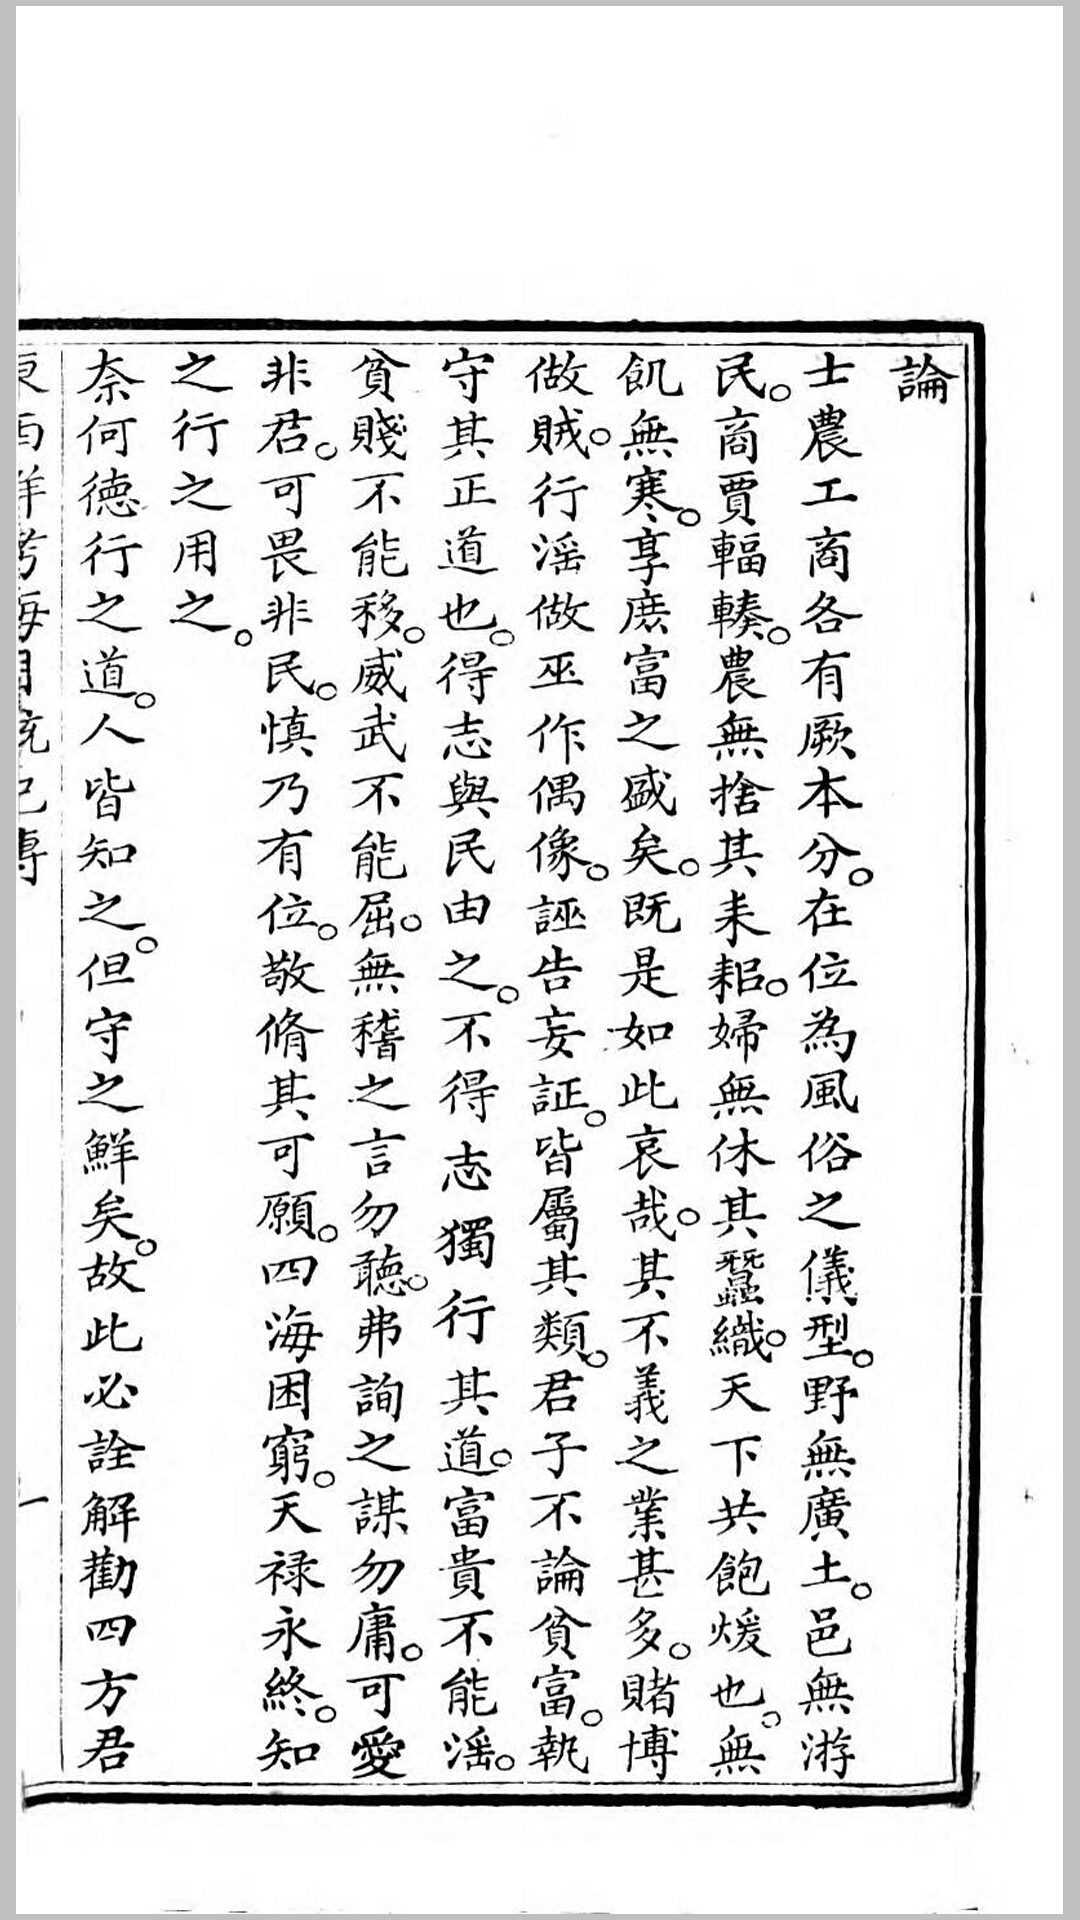 論
士農工商各有厥本分。在位為風俗之儀型。野無廣土。邑無游
民。商賈輻輳。農無捨其耒耜。婦無休其蠶織。天下共飽煖也。無
飢無寒。享庶富之盛矣。既是如此哀哉。其不義之業甚多。賭博
做賊。行滛做巫作偶像。誣告妄証。皆屬其類。君子不論貧富。執
守其正道也。得志與民由之。不得志獨行其道。富貴不能滛。
貧賤不能移。威武不能屈。無稽之言勿聽。弗詢之謀勿庸。可愛
非君。可畏非民。慎乃有位。敬脩其可願。四海困窮。天祿永終。知
之行之用之。
奈何德行之道。人皆知之。但守之鮮矣。故此必詮解勸四方君
東西洋考每月統記傳
一